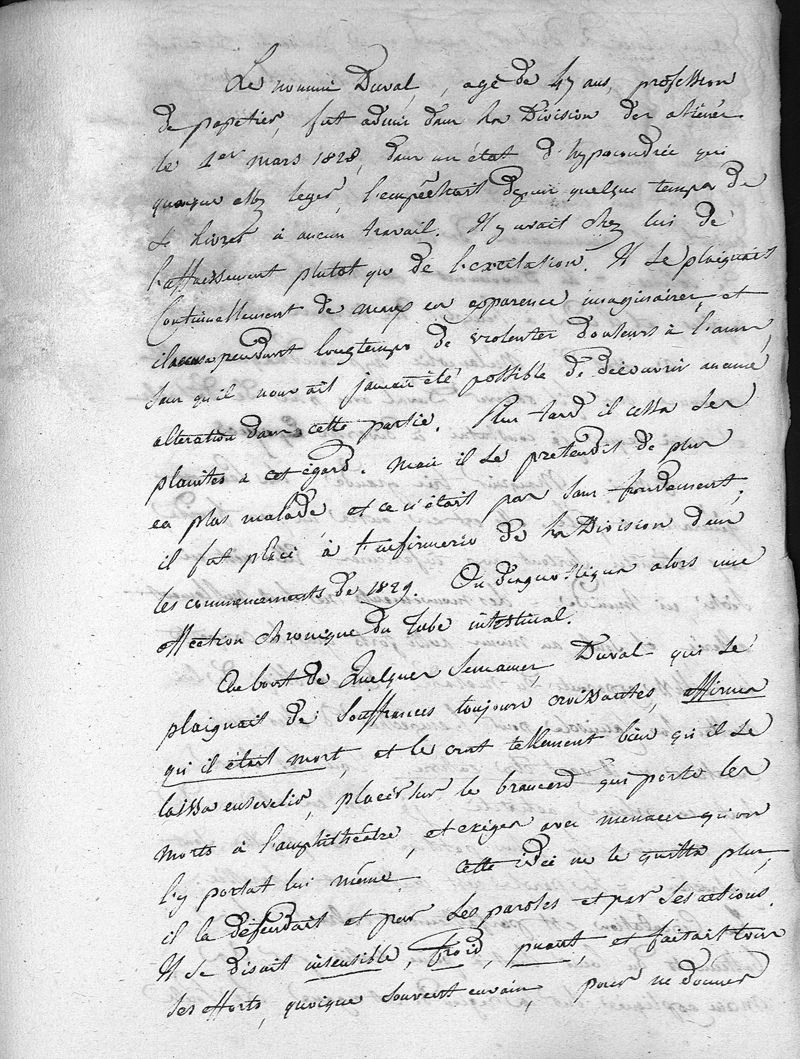 Le nommé Duval, agé de 47 ans, profession
de papetier, fut admis dans la Division des aliénés
le 1er mars 1828, dans un état d'hypocondrie qui
quoique assez leger, l'empêchait depuis quelque temps de
se livrer à aucun travail. Il y avait chez lui de
l'affaissement plutot que de l'exaltation. Il se plaignait
Continuellement de maux en apparence imaginaires, et
il accusa pendant longtemps de violentes douleurs à l'anus,
sans qu'il nous ait jamais été possible de découvrir aucune
alteration dans cette partie. Plus tard il cessa ses
plaintes à cet égard. mais il se pretendit de plus
en plus malade, et ce n'était pas sans fondement,
il fut placé à l'infirmerie de la Division dans
les commencements de 1829. On diagnostiqua alors une
affection chronique du tube intestinal.
Au bout de Quelques Semaines, Duval qui se
plaignait de Souffrances toujours croissantes, affirma
qu'il était mort, et le crut tellement bien qu'il se
laissa ensevelir, placer sur le brancard qui porte les
morts à l'amphithéatre, et exigea avec menaces qu'on
l'y portat lui même. Cette idée ne le quitta plus,
il la défendait et par ses paroles et par ses actions.
Il se disait insensible, froid, puant, et faisait tous
ses efforts, quoique souvent en vain, pour ne donner